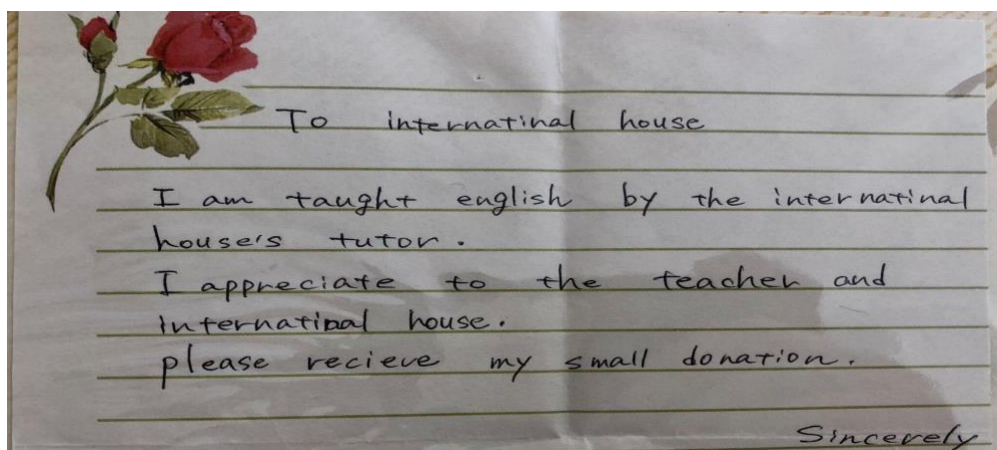 To internatinal house
I am taught english by the internatinal
house's tutor.
I appreciate to the teacher and
internatinal house.
please recieve my small donation.
Sincerely